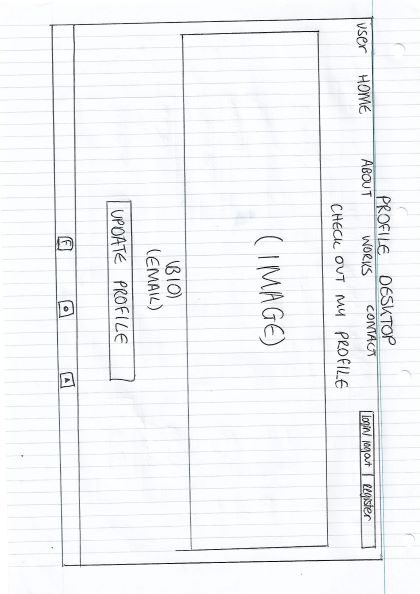 PROFILE DESKTOP
user HOME ABOUT WORKS CONTACT login/logout register
CHECK OUT MY PROFILE
(IMAGE)
(BIO)
(EMAIL)
UPDATE PROFILE
F